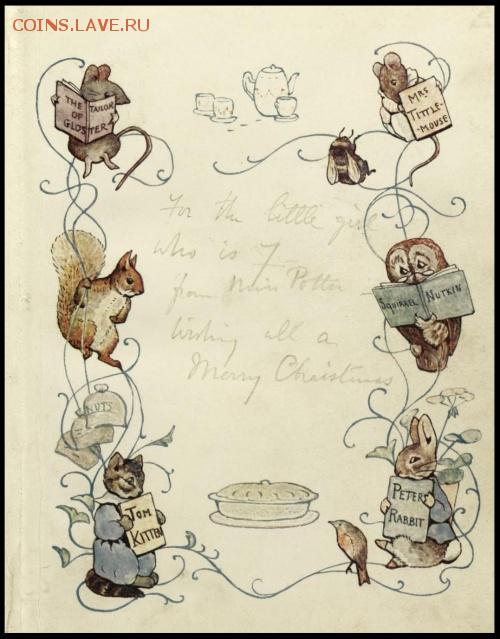 COINS.LAVE.RU
THE TAILOR
OF
GLOSTER
MRS
TITTLE-
MOUSE
For the little girl
who is 7
from Miss Potter –
wishing all a
Merry Christmas
SQUIRREL NUTKIN
NUTS
TOM
KITTEN
PETER
RABBIT